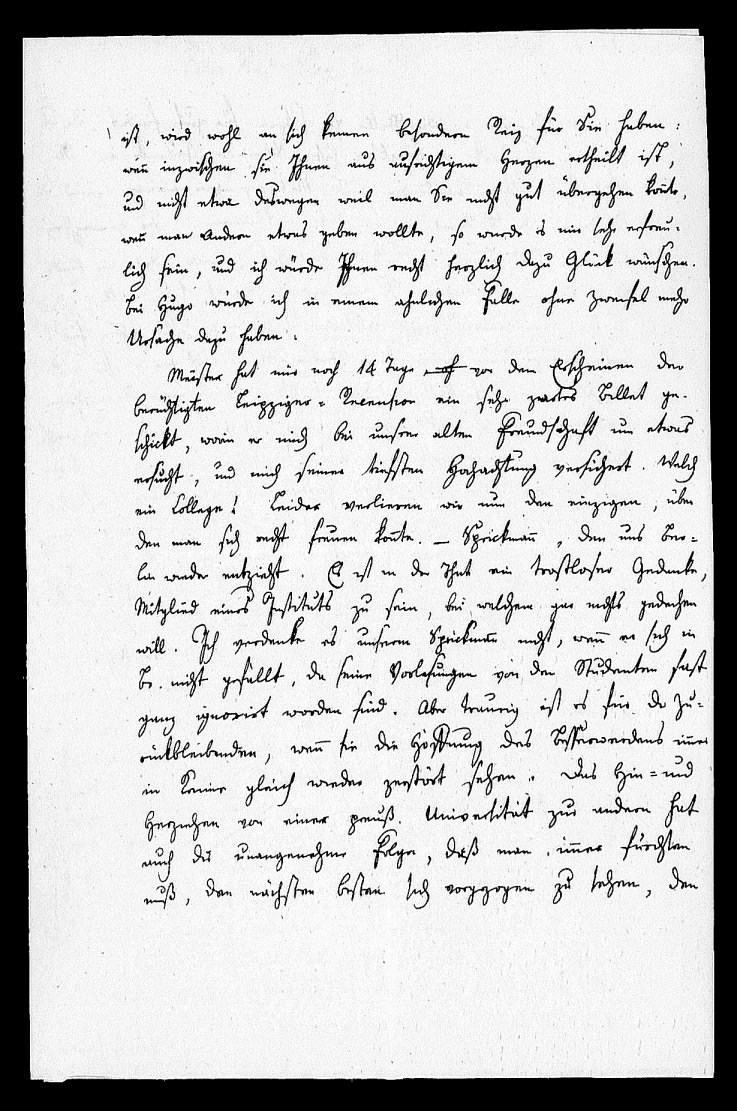 ist, wird wohl an sich keinen besondern Reiz für Sie haben:
wen̅ inzwischen sie Ihnen aus aufrichtigem Herzen ertheilt ist,
und nicht etwa deswegen weil man Sie nicht gut übergehen kon̅te,
wen̅ man Andern etwas geben wollte, so wurde es mir sehr erfreu-
lich sein, und ich würde Ihnen recht herzlich dazu Glück wünschen.
Bei Hugo würde ich in einem ähnlichen Falle ohne Zweifel mehr
Ursache dazu haben.
Meister hat mir noch 14 Tage vor dem Erscheinen der
berüchtigten Leipziger-Recension ein sehr zartes Billet ge-
schickt, worin er mich bei unsrer alten Freundschaft um etwas
ersucht, und mich seiner tiefsten Hochachtung versichert. Welch
ein College! Leider verlieren wir nun den einzigen, über
den man sich recht freuen kon̅te. — Sprickman̅, den uns Ber-
lin wieder entzieht. Es ist in der That ein trostloser Gedanke,
Mitglied eines Instituts zu sein, bei welchem gar nichts gedeihen
will. Ich verdenke es unserm Sprickman̅ nicht, wen̅ er sich in
Br. nicht gefällt, da seine Vorlesungen von den Studenten fast
ganz ignorirt worden sind. Aber traurig ist es für die Zu-
rückbleibenden, wen̅ sie die Hoffnung des Besserwerdens im̅er
im Keime gleich wieder zerstört sehen. Das Hin- und
Herziehen von einer preuß. Universität zur andern hat
auch die unangenehme Folge, daß man im̅er fürchten
muß, den nächsten besten sich vorgezogen zu sehen, den